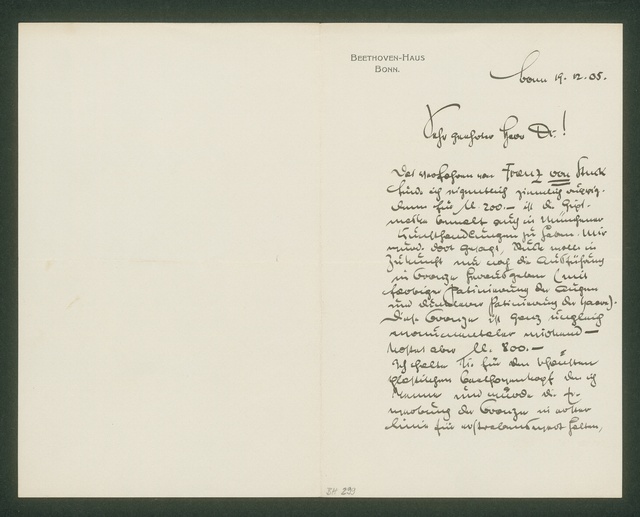 BEETHOVEN-HAUS
BONN.
Bonn 19. 12. 05.
Sehr geehrter Herr Dr.!
Das Verfahren von Franz von Stuck
finde ich eigentlich ziemlich
denn für M. 200.— ist die Gips-
maske bemalt auch in Münchner
Kunsthandlungen zu haben. Mir
wurde dort gesagt, Stuck wolle in
Zukunft nur noch die Ausführung
in Bronze herausgeben (mit
farbiger Patinierung der Augen
und dunklerer Patinierung der Haare).
Diese Bronze ist ganz ungleich
monumentaler wirkend —
kostet aber M. 800.—
Ich halte sie für den schönsten
plastischen Beethovenkopf den ich
kenne und würde die Er-
werbung der Bronze in erster
Linie für erstrebenswert halten,
BH 299